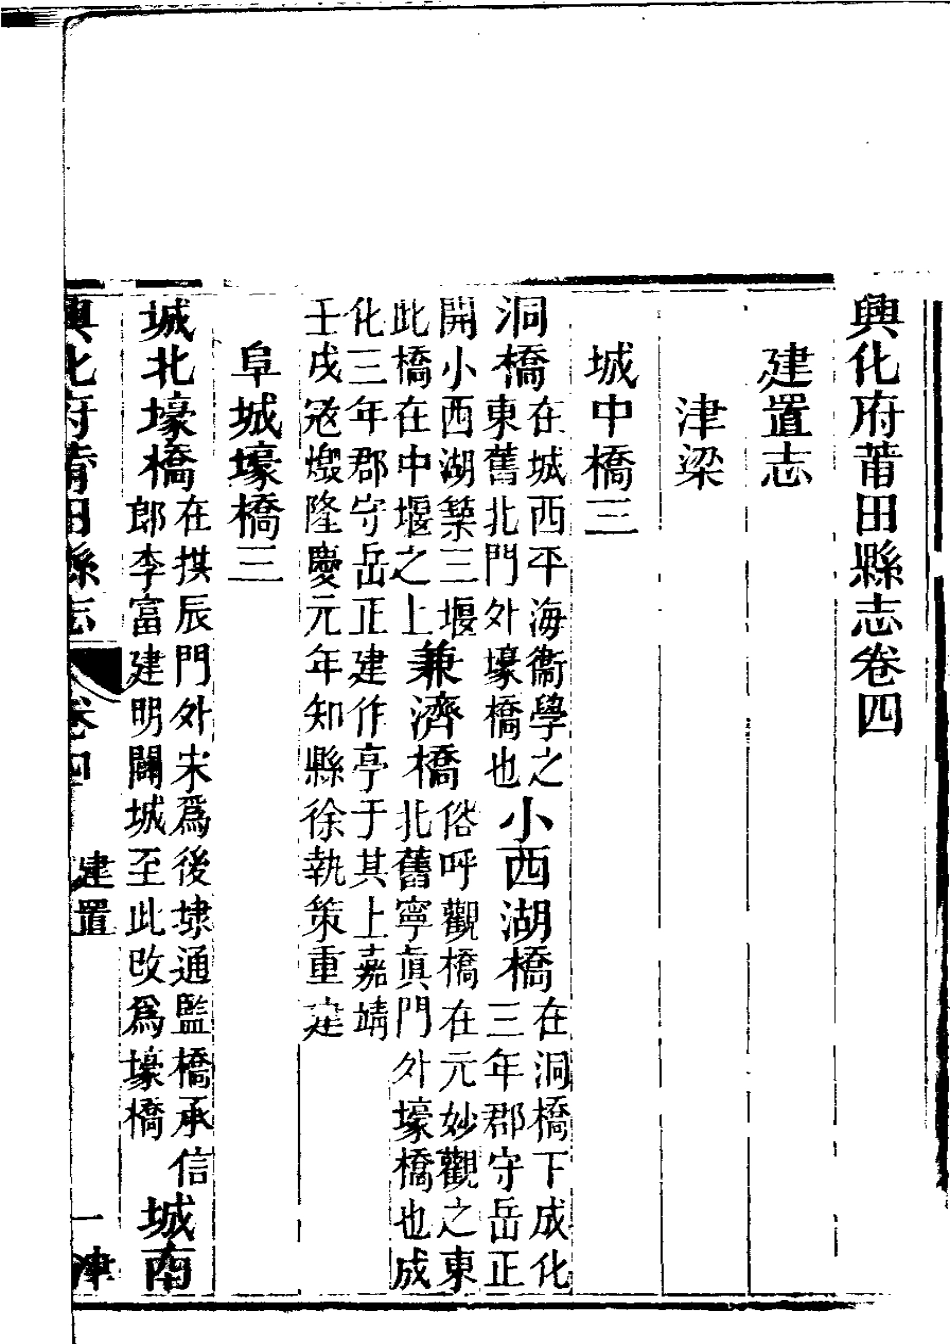 興化府莆田縣志卷四
建置志
津梁
城中橋三
洞橋在城西平海衞學之東舊北門外壕橋也小西湖橋在洞橋下成化三年郡守岳正
開小西湖築三堰此橋在中堰之上兼濟橋俗呼觀橋在元妙觀之東北舊寧眞門外壕橋也成
化三年郡守岳正建作亭于其上嘉靖壬戌宼燬隆慶元年知縣徐執策重建
阜城壕橋三
城北壕橋在拱辰門外宋爲後埭通監橋承信郎李富建明闢城至此改爲壕橋城南
興化府莆田縣志 卷四 建置 一 津